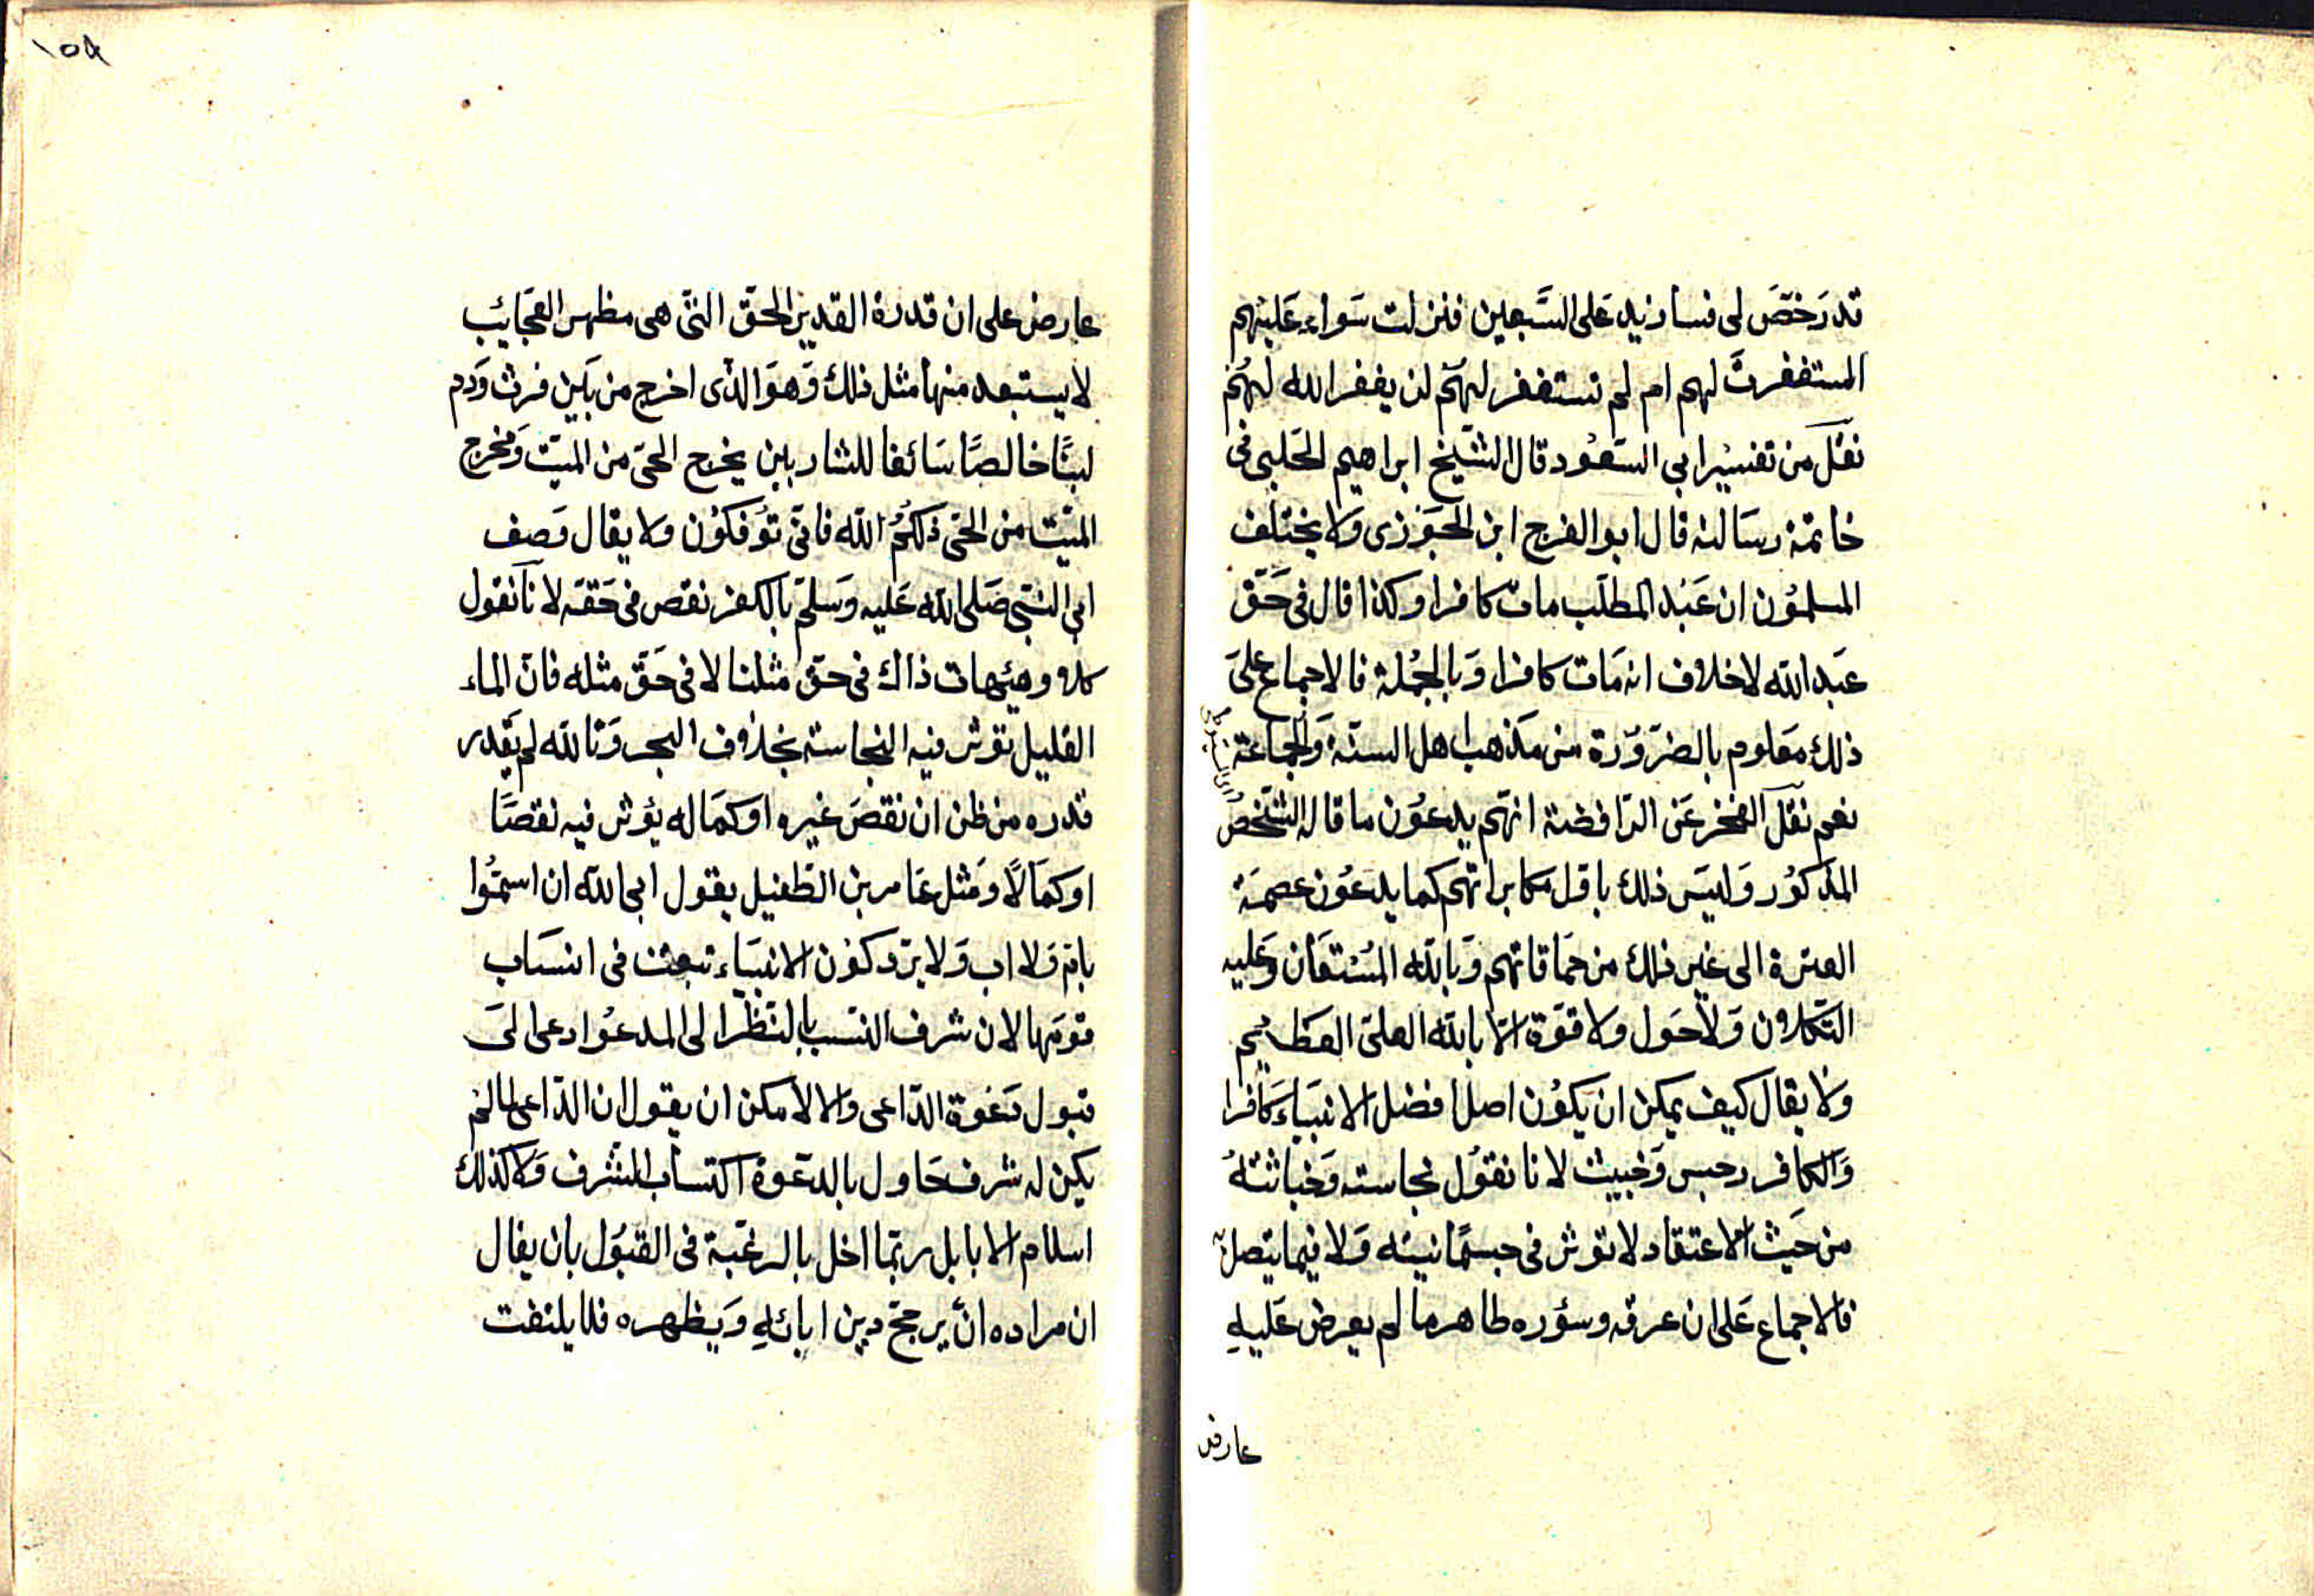 قد رَخصَ لى فسازيد عَلى السَّبعين فنزلت سَواء عَليهم
استغفرتَ لهم ام لم تستغفر لهم لن يغفر الله لهم
نقل من تفسير ابى السّعُود قال الشيخ ابراهيم الحلبى فى
خاتمة رسَالته قال ابو الفرج ابن الجَوزى وَلا يختلف
المسلمُون ان عَبْد المطلب مات كافرا وكذا قال فى حَقّ
عَبد الله لا خلاف انه مَات كافرا وَبالجُملة فالاجماع عَلىَ
ذلك مَعلوم بالضرَوَرة من مَذهب اهل السنّة وَالجماعَة
نعم نقل الفخر عَن الرّافضة انهّم يدعوُن ما قاله الشّخصُ
المذكوُر وَليسَ ذلك باقل مكابراتهم كما يدعوُن عصمَة
العترة الى غير ذلك من حمَاقاتهم وَبالله المسُتعَان وَعليه
التكلان وَلاحَول ولا قوّة الاّ بالله العلىّ العَظيم
وَلا يقال كيف يمكن ان يكوُن اصل افضل الانبيَاء كافرا
وَالكافر رجس وَخبيث لانا نقوُل نجاسته وَخباثتهُ
من حَيث الاعتقاد لا توثر فى جسمَانيته وَلا فيما يتصل به
فالاجماع عَلى ان عرقه وسؤره طاهر ما لم يعرض عَليهِ
عارض
١٥٨
عارض على ان قدرة القدير الحقّ التىّ هى مظهر العجَائب
لا يستبعد منها مثل ذلك وَهوَ الذّى اخرج من بَين فرث وَدم
لبنًا خالصًا سَائغا للشاربين يخرج الحىّ من الميّت وَمخرج
الميّت من الحىّ ذلكُم الله فانىّ تؤُفكوُن ولا يقال وَصف
ابى النبّى صَلى الله عَليه وَسَلمّ بالكفر نقص فى حَقه لانا نقول
كلا وهيهات ذاك فى حقّ مثلنا لا فى حَقّ مثله فانّ الماء
القليل تؤثر فيه النجاسة بخلاف البحر وَتالله لم يقَدر
قدره من ظن ان نقصَ غيره اوكمَاله يؤثر فيه نقصًا
اوكمَالاً وَمثل عَامر بن الطّفيل يقول ابى الله ان اسموُا
بام وَلا اب وَلا يرَد كوُن الانبيَاء تبعث فى انسَاب
قومَها لان شرف النسَب بالنّظر الى المدعوُ ادعى الىَ
قبول دَعوَة الدّاعى وَالا لامكن ان يقول ان الدّاعى لما لم
يكن له شرف حَاول بالدعَوة اكتساب الشرف وَلا كذلك
اسلام الابا بل ربمّا اخل بالرغبَة فى القبوُل بان يقال
ان مراده انّ يرجحّ دين ابائهِ وَيظهره فلا يلتفت